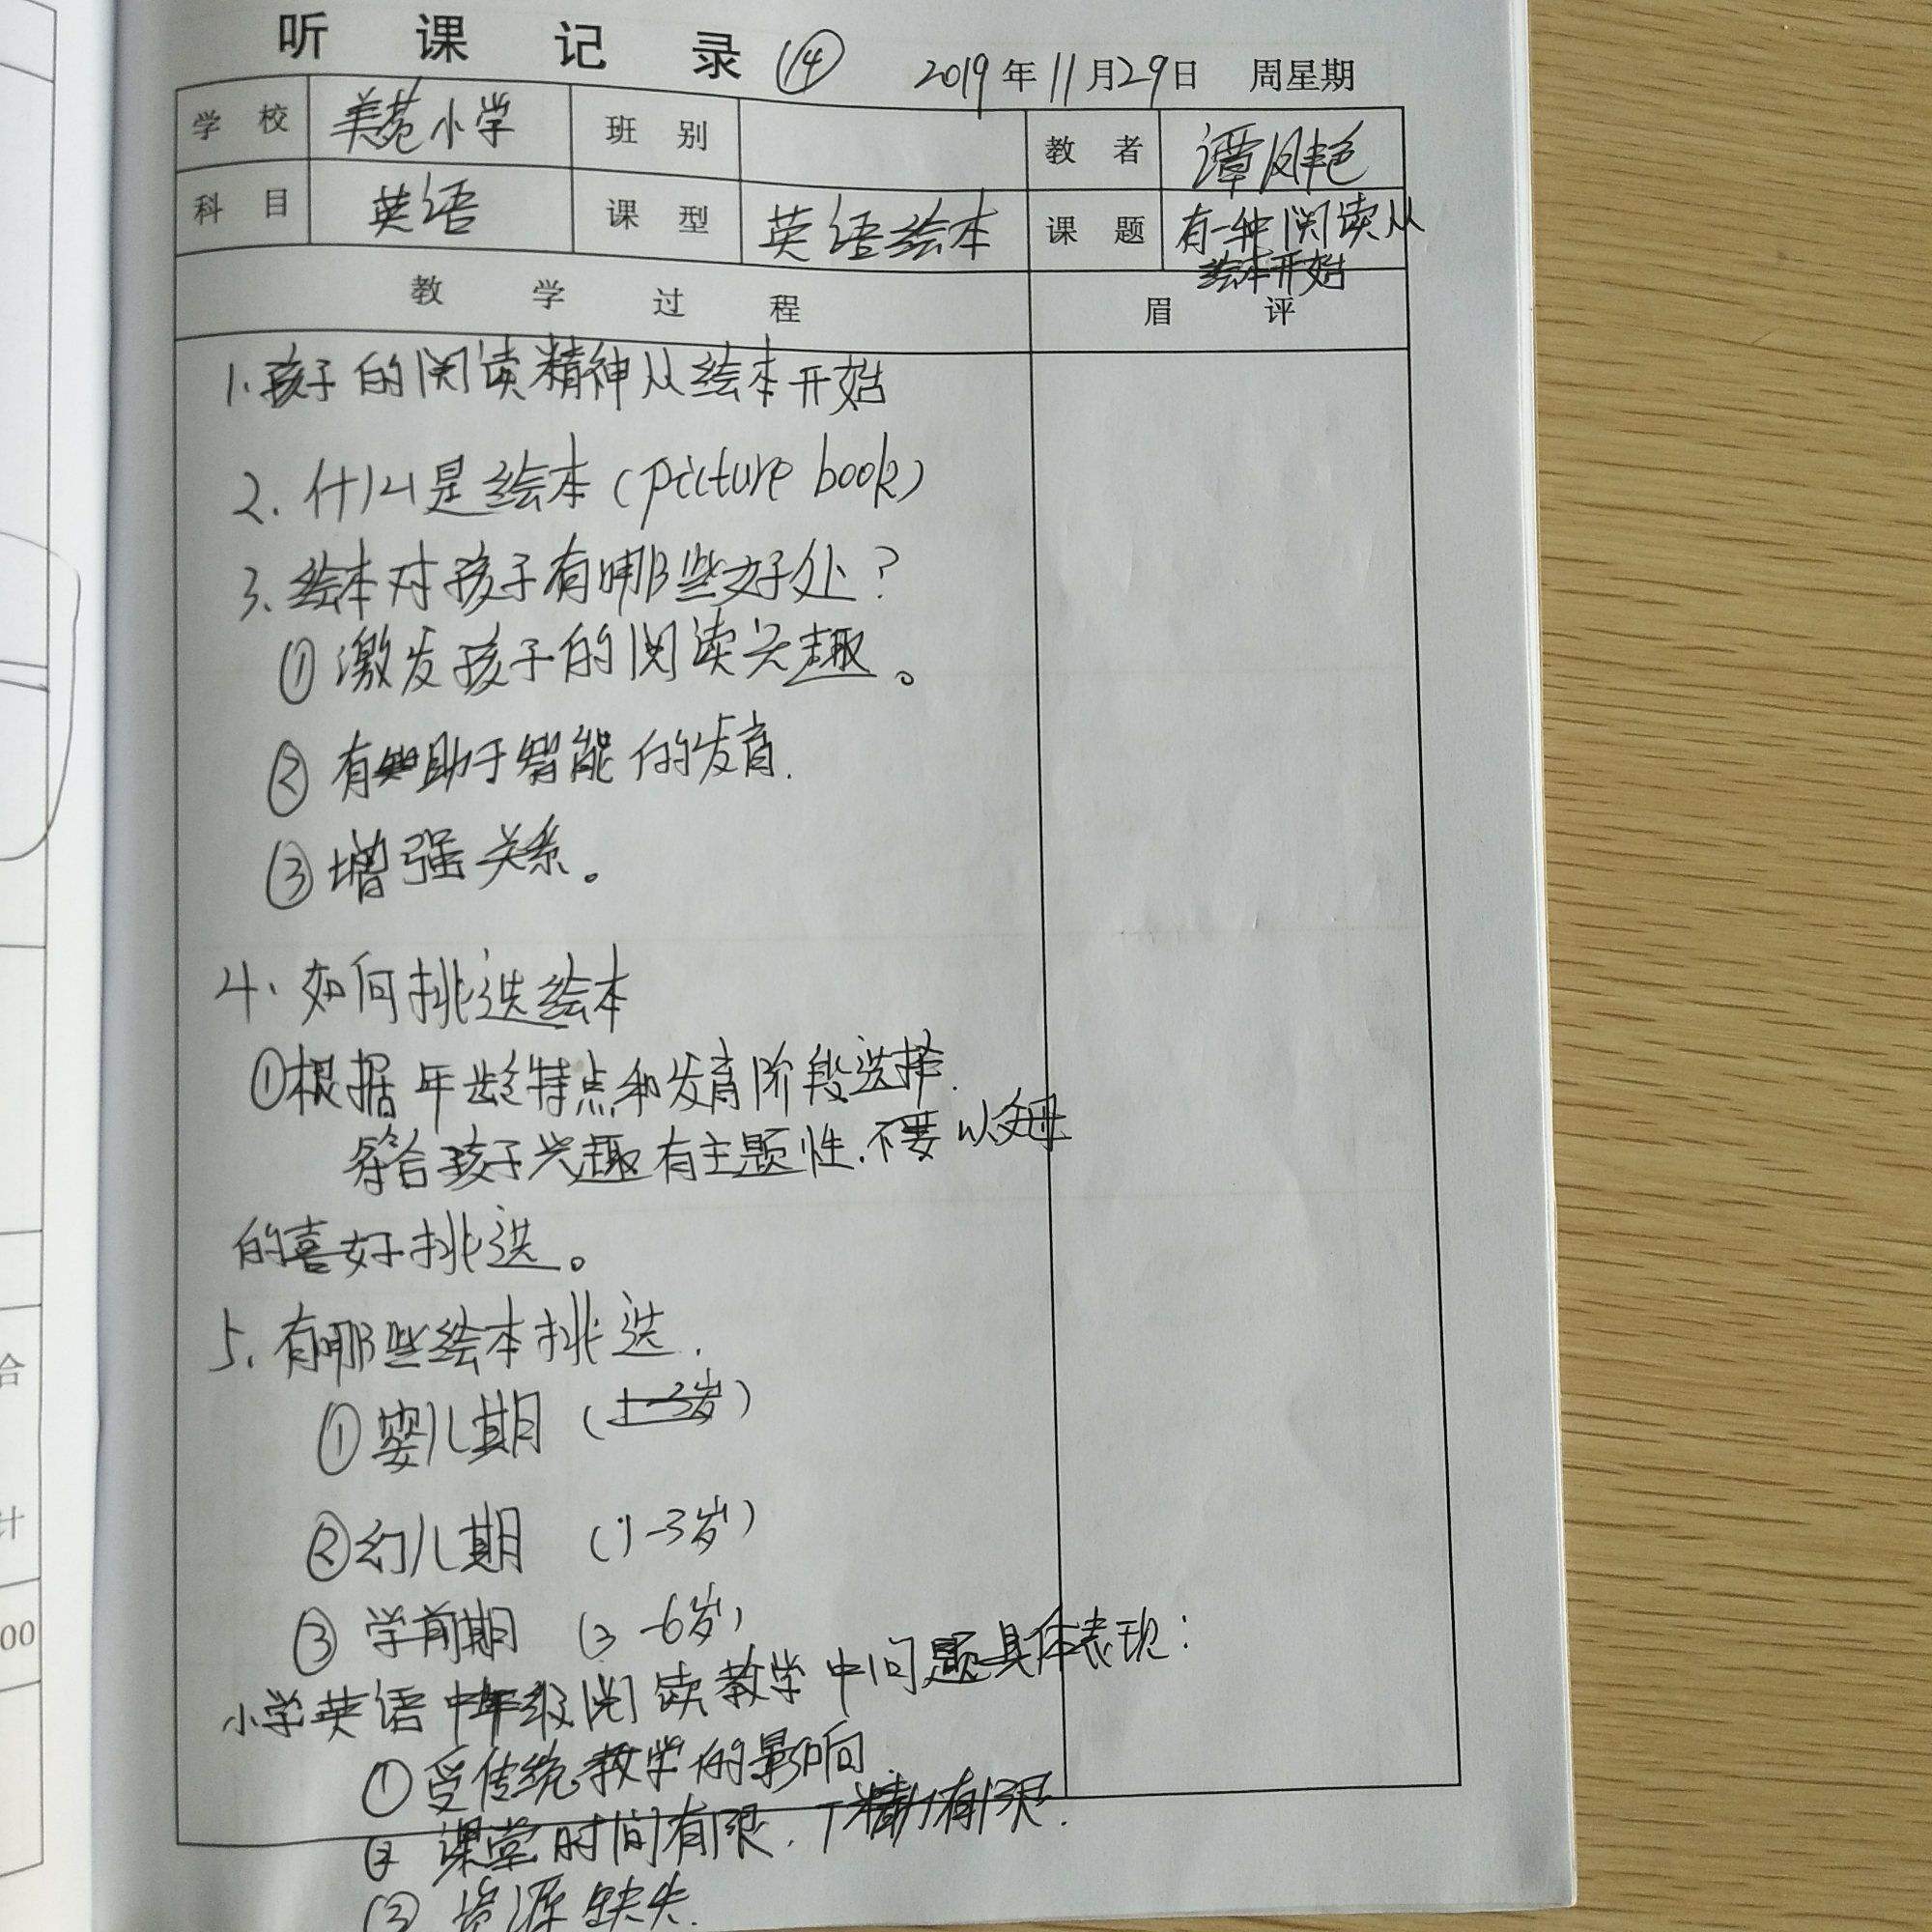 听课记录 ⑭ 2019年11月29日 周星期
学校 美苑小学 班别 教者 谭凤艳
科目 英语 课型 英语绘本 课题 有一种阅读从
绘本开始
教学过程 眉评
1.孩子的阅读精神从绘本开始
2.什么是绘本(picture book)
3、绘本对孩子有哪些好处?
①激发孩子的阅读兴趣。
②有助于智能的发育.
③增强关系。
4、如何挑选绘本
①根据年龄特点和发育阶段选择.
符合孩子兴趣有主题性.不要以父母
的喜好挑选。
5.有哪些绘本挑选.
①婴儿期(1-3岁)
②幼儿期 (1-3岁)
③学前期 (3-6岁)
小学英语中年级阅读教学中问题具体表现:
①受传统教学的影响
② 课堂时间有限.精力有限.
③ 资源缺失.
合
计
00